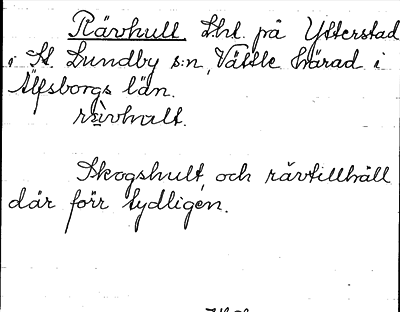 Rävhult Lht. på Ytterstad
i St. Lundby s:n, Vättle härad i
Älfsborgs län.
rä̀vhult.
Skogshult och rävtillhåll
där förr tydligen.